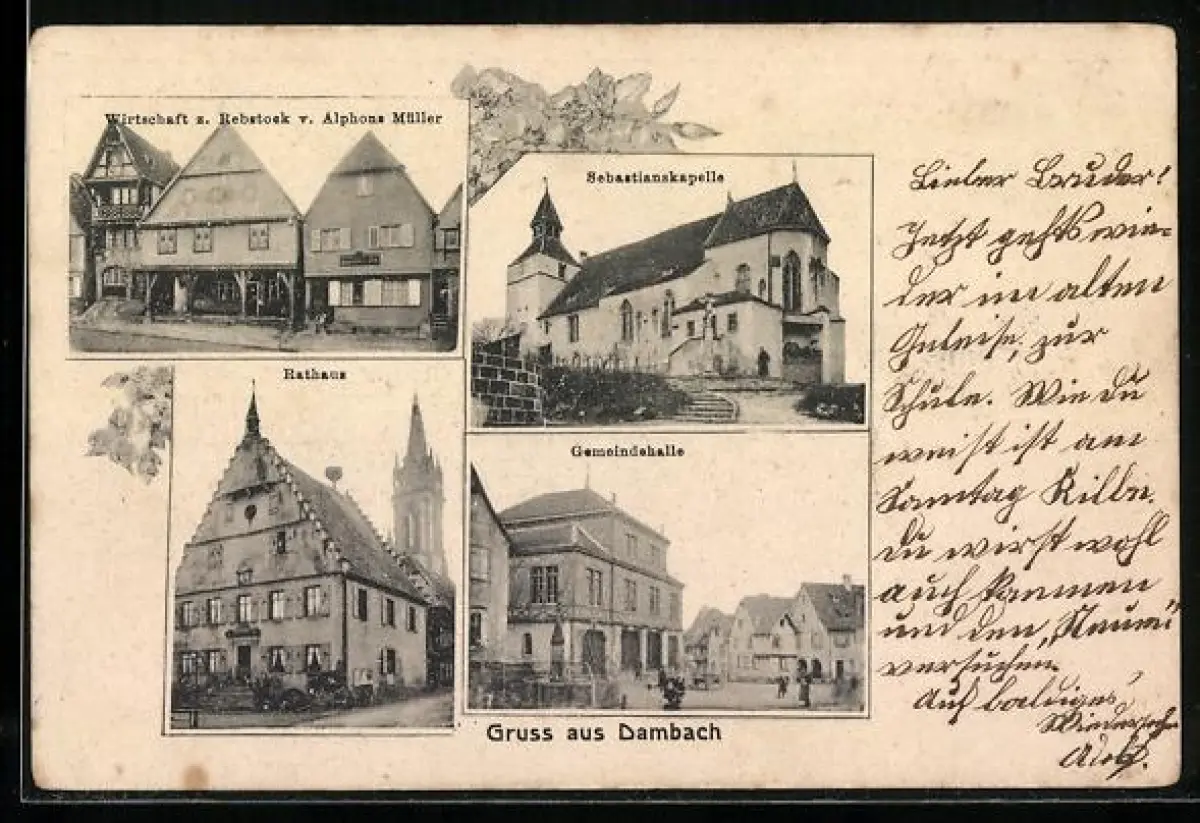 Wirtschaft z. Rebstock v. Alphons Müller
Sebastianskapelle
Rathaus
Gemeindehalle
Gruss aus Dambach
Lieber Bruder!
Jetzt gehts wie-
der im alten
Geleise, zur
Schule. Wie du
weist ist am
Samtag Kilbe.
du wirst wohl
auch kommen
und den „Neuen"
versuchen.
Auf baldiges
Wiedersehn
Adolf.